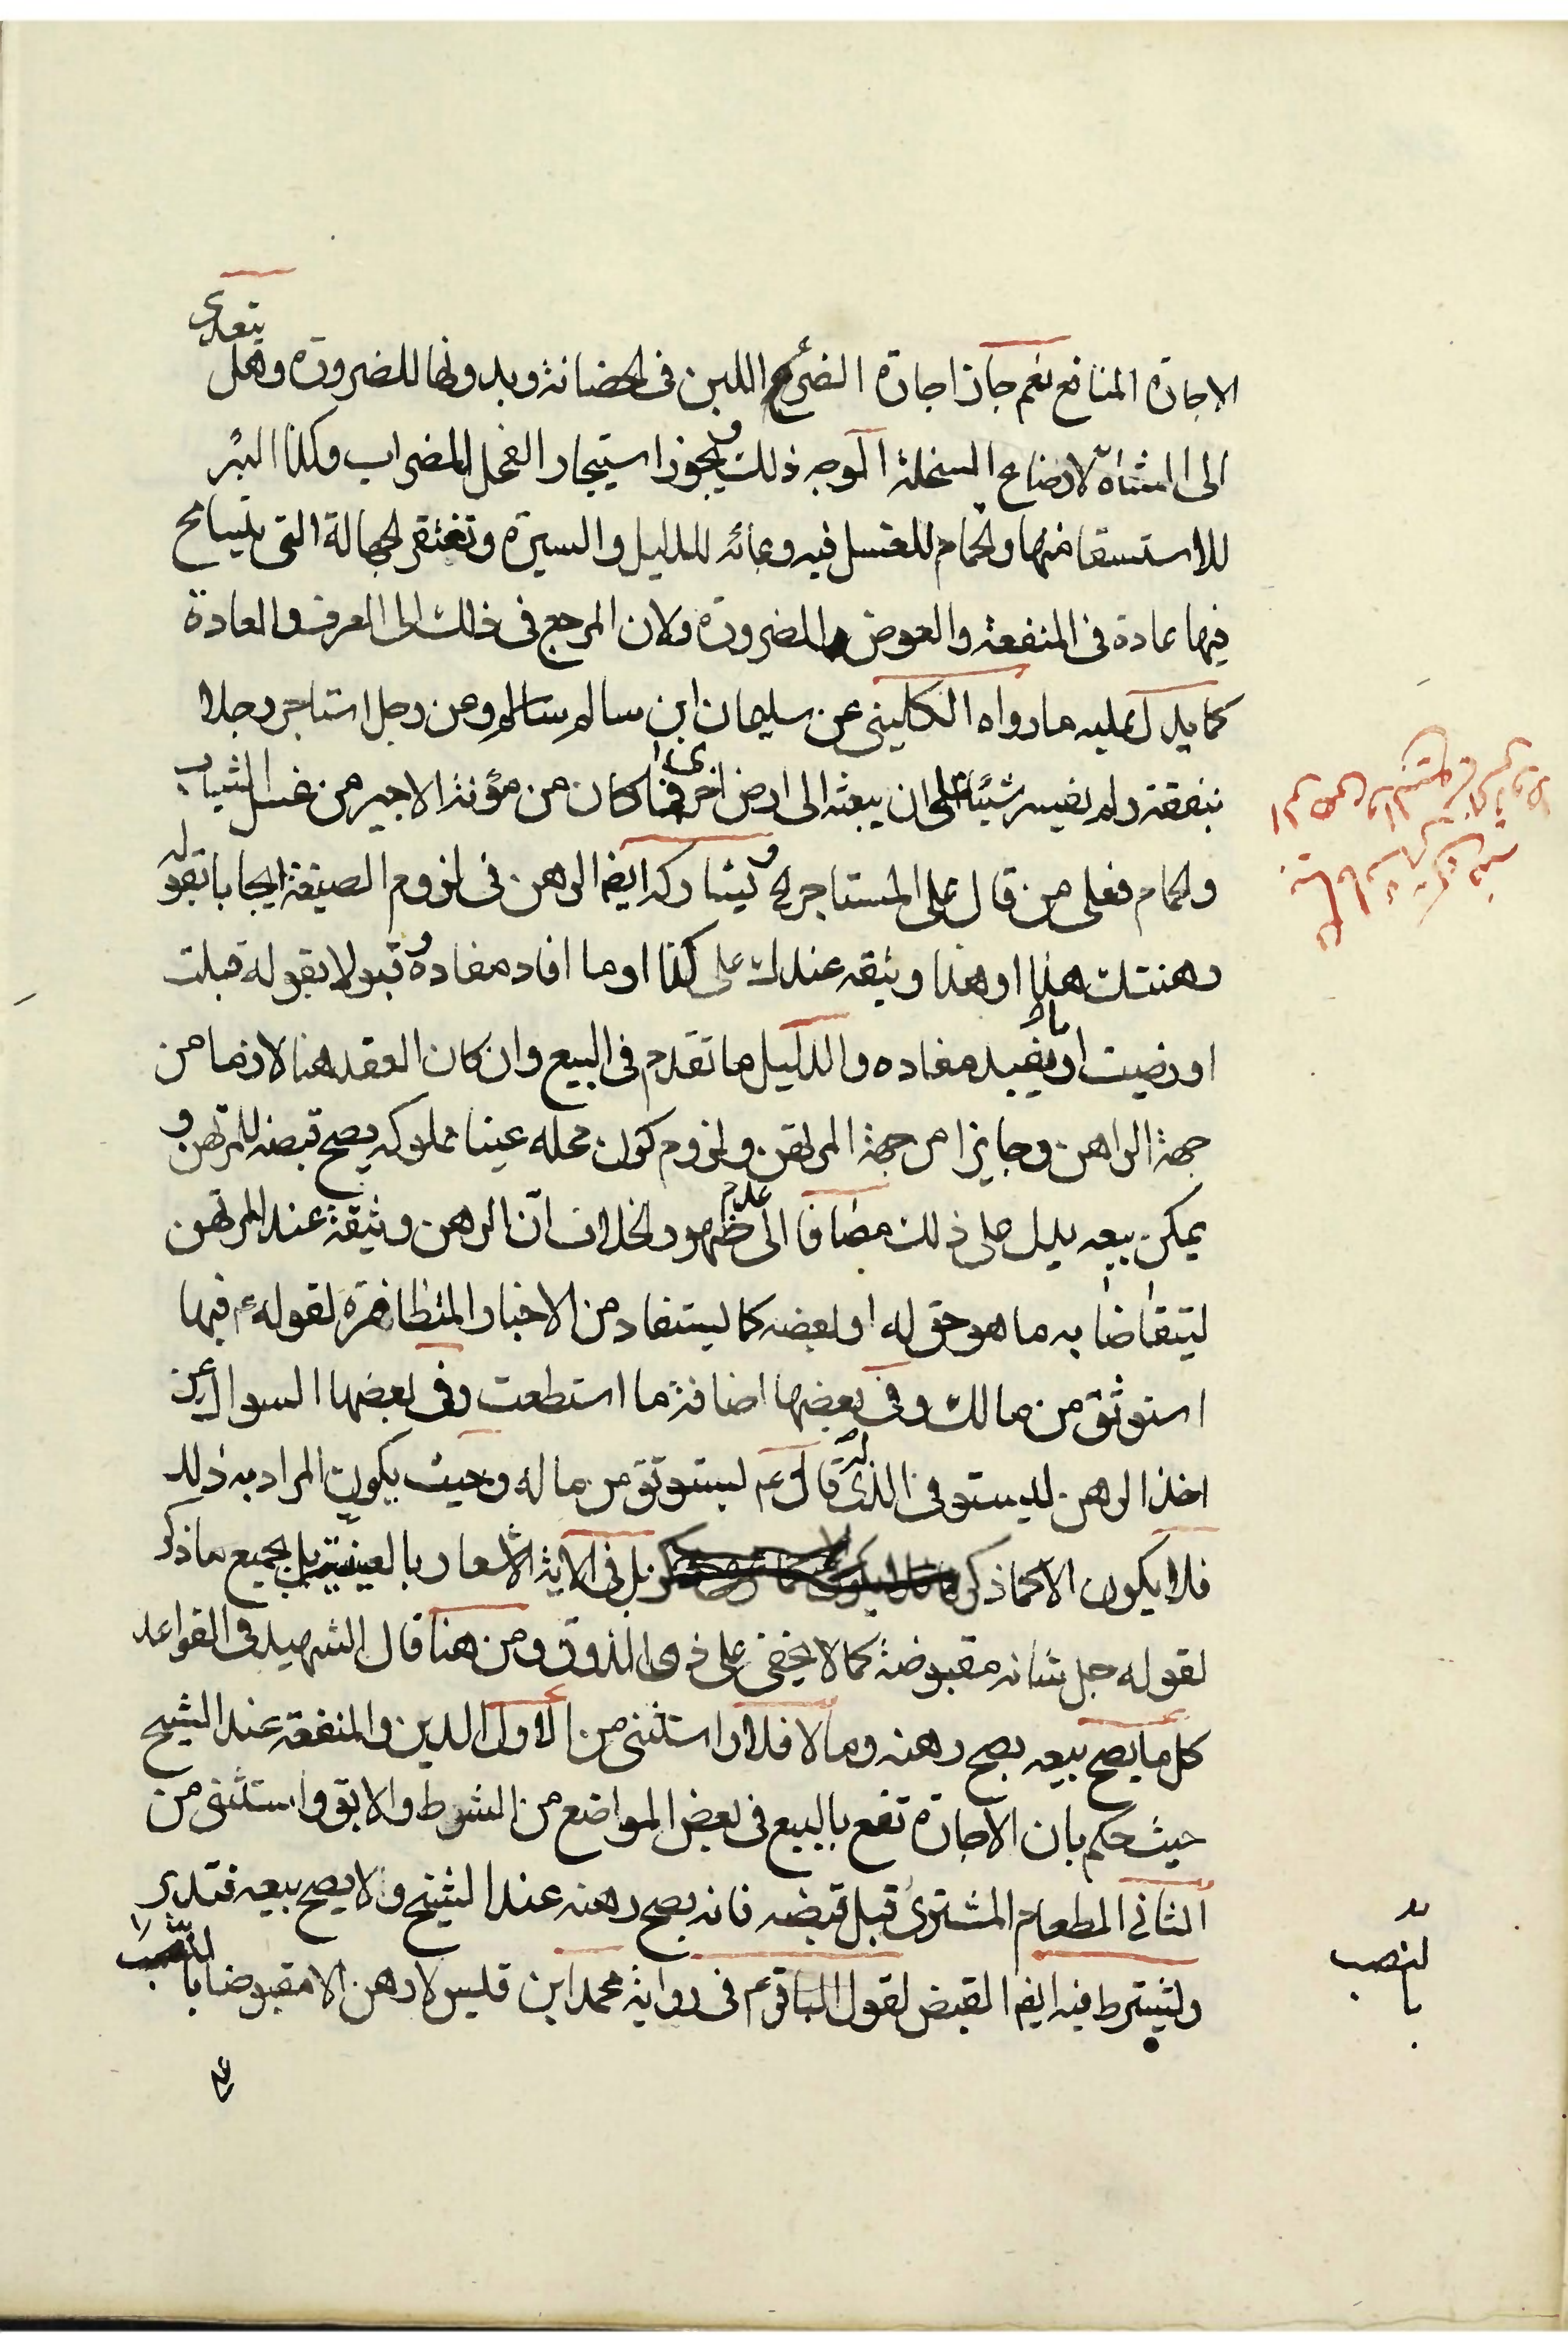 الاجارة المنافع نعم جاز اجارة الضرع اللبن فى الحضانة وبدونها للضرورة وهل يتعدى
الى الشاة لارضاع السخلة الوجه ذلك ويجوز استيجار الفحل للضراب وكذا البئر
للاستسقا منها والحمام للغسل فيه وعائه للدليل والسيرة وتغتفر الجهالة التى يتسامح
فيها عادة فى المنفعة والعوض للضرورة ولان المرجع فى ذلك الى العرف والعادة
كما يدل عليه ما رواه الكلينى عن سليمان ابن سالم وعن رجل استاجر رجلا
بنفقة ولم يفسر شيئا على ان يبعثه الى ارض اخرى فما كان من مؤنة الاجير من غسل الثياب
والحمام فعلى من قال على المستاجر ويشاركه ايضا الرهن فى لزوم الصيغة ايجابا بقوله
رهنتك هذا او هذا وثيقه عندك على كذا او ما افاد مفاده وقبولا بقوله قبلت
او رضيت او ما يفيد مفاده والدليل ما تقدم فى البيع وان كان العقد هنا لازما من
جهة الراهن وجايزا من جهة المرتهن ولزوم كون محله عينا مملوكه يصح قبضه للمرتهن و
يمكن بيعه يدل على ذلك مضافا الى عدم ظهور الخلاف ان الرهن وثيقة عند المرتهن
ليتقاضا به ما هو حق له او لبعضه كما يستفاد من الاخبار المتظافرة لقوله ع فيها
استوثق من مالك وفى بعضها اضافة ما استطعت وفى بعضها السوال عن
اخذ الرهن ليستوفى الذى له قال ع يستوثق من ماله وحيث يكون المراد به ذلك
فلا يكون الا كما ذكر بل فى الاية الاشعار بالعينية بل بجميع ما ذكر
لقوله جل شانه مقبوضة كما لا يخفى على ذوى الذوق ومن هنا قال الشهيد فى القواعد
كل ما يصح بيعه يصح رهنه وما لا فلا واستثنى من الاول الدين والمنفعة عند الشيخ
حيث حكم بان الاجارة تقع بالبيع فى بعض المواضع من الشرط والابق واستثنى من
الثانى الطعام المشترى قبل قبضه فانه يصح رهنه عند الشيخ ولا يصح بيعه فتدبر
ويشترط فيه ايضا القبض لقول الباقر ع فى رواية محمد ابن قليس لا رهن الا مقبوضا بالنصب
بالنصب